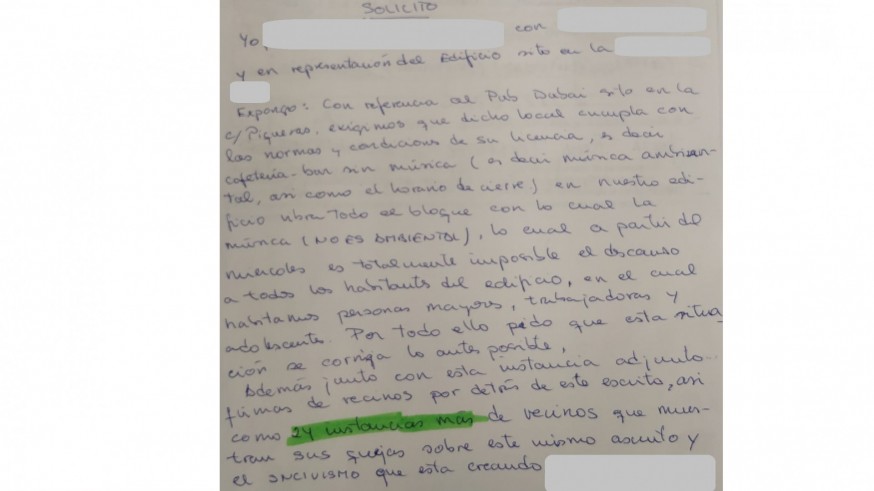 SOLICITO
Yo, con
y en representación del Edificio sito en la
Expongo: Con referencia al Pub Dubai sito en la
c/ Piqueras, exigimos que dicho local cumpla con
las normas y condiciones de su licencia, es decir
cafetería-bar sin música (es decir música ambien-
tal, asi como el horario de cierre) en nuestro edi-
ficio vibra todo el bloque con lo cual la
música (NO ES AMBIENTAL), lo cual a partir del
miercoles es totalmente imposible el descanso
a todos los habitants del edificio, en el cual
habitamos personas mayores, trabajadoras y
adolescentes. Por todo ello pido que esta situa
ción se corrija lo antes posible,
Además junto con esta instancia adjunto
firmas de vecinos por detrás de este escrito, asi
como 24 instancias mas de vecinos que mues-
tran sus quejas sobre este mismo asunto y
el INCIVISMO que esta creando